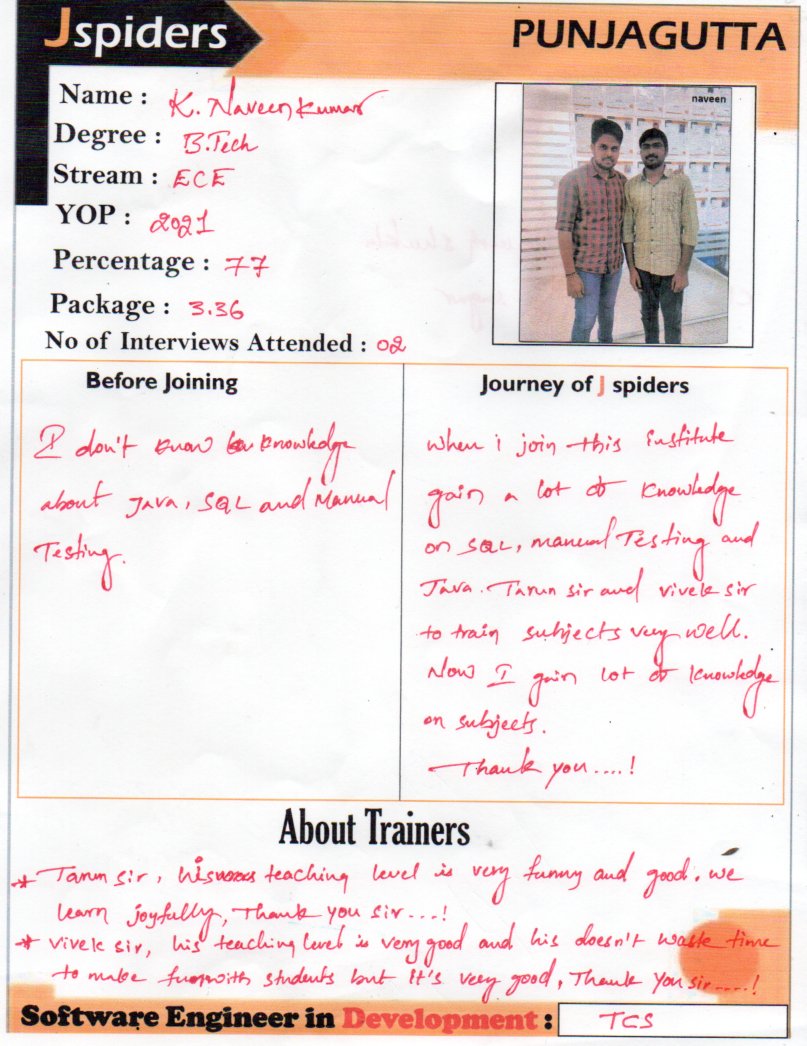 Jspiders
PUNJAGUTTA
Name : K. Naveen Kumar
naveen
Degree : B.Tech
Stream : ECE
YOP : 2021
Percentage : 77
Package : 3.36
No of Interviews Attended : 02
Before Joining
I don't know knowledge
about Java, SQL and Manual
Testing.
Journey of J spiders
when i join this institute
gain a lot of knowledge
on SQL, manual Testing and
Java. Tarun sir and vivek sir
to train subjects very well.
Now I gain lot of knowledge
on subjects.
Thank you....!
About Trainers
* Tarun sir, his teaching level is very funny and good. we
learn joyfully, Thank you sir...!
* vivek sir, his teaching level is very good and his doesn't waste time
to make fun with students but it's very good, Thank you sir....!
Software Engineer in Development : TCS